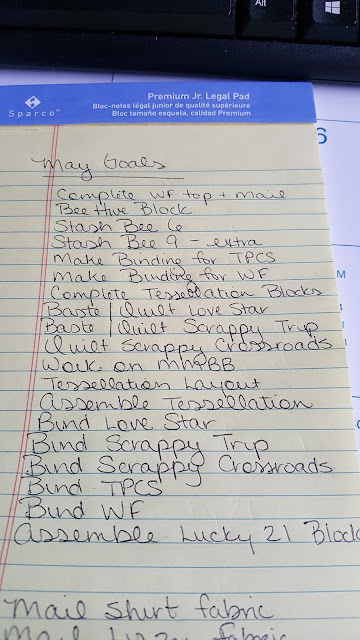 Alt
Sparco™
Premium Jr. Legal Pad
Bloc-notes légal junior de qualité supérieure
Bloc tamaño esquela, calidad Premium
May Goals
Complete WF top + mail
Bee Hive Block
Stash Bee 6
Stash Bee 9 - extra
Make Binding for TPCS
Make Binding for WF
Complete Tessellation Blocks
Baste / Quilt Love Star
Baste / Quilt Scrappy Trip
Quilt Scrappy Crossroads
Work on
Tessellation Layout
Assemble Tessellation
Bind Love Star
Bind Scrappy Trip
Bind Scrappy Crossroads
Bind TPCS
Bind WF
Assemble Lucky 21 Block
Mail Shirt fabric
Mail fabric